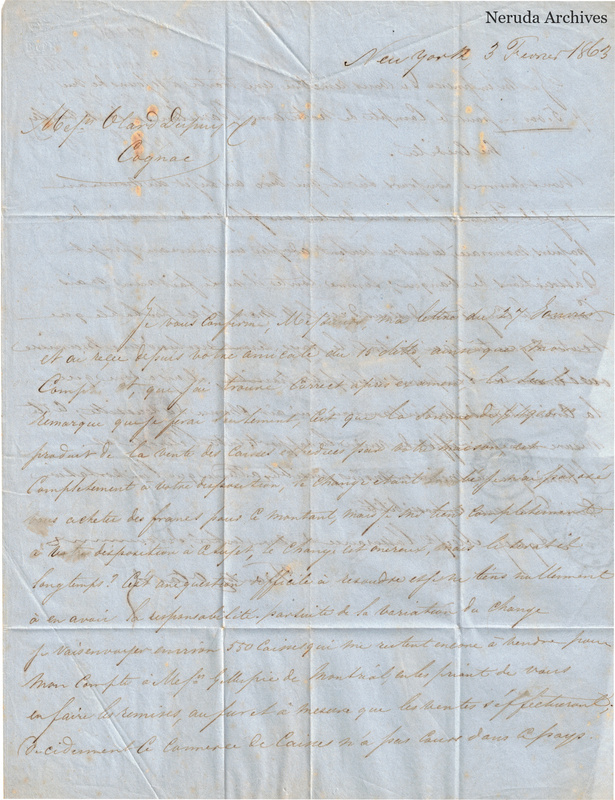 Neruda Archives
New York 3 Fevrier 1863
Mess Otard Dupuy & Co
Cognac
Je vous confirme, Messieurs ma lettre du 27 Janvier
et ai reçu depuis votre amicale du 15 ditto ainsique mon
Compte et, que j'ai trouvé correct, après examen: La seule
remarque que je ferai seulement, c'est que la somme
produit de la vente des caisses par votre maison est
Completement à votre disposition, le change étant
vous acheter des francs pour ce montant, mais je me tiens completement
à votre disposition à ce sujet, le change est onereux, mais le sera t-il
longtemps? C'est une question difficile à resoudre et je ne tiens nullement
à en avoir la responsabilité par suite de la variation du change
Je vais envoyer environ 550 caisses qui me restent encore à vendre pour
mon compte à Mess Gillespie de Montréal, en les priant de vous
en faire les remises, au fur et à mesure que les ventes s'effectueront.
Decidement le commerce de Caisses n'a pas cours dans ce pays.